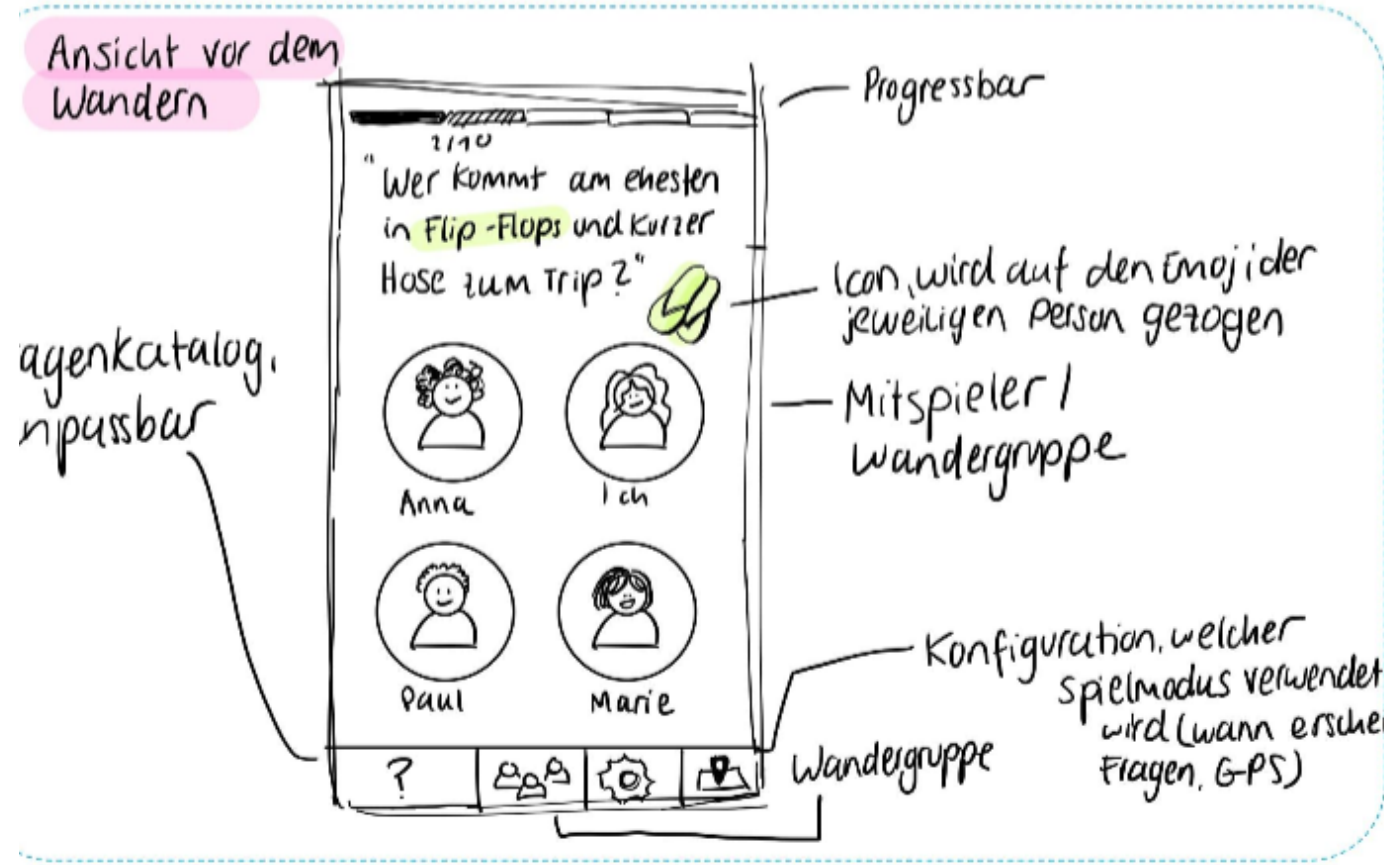 Ansicht vor dem
Wandern
Progressbar
2/10
"Wer kommt am ehesten
in Flip-Flops und kurzer
Hose zum Trip?"
Icon, wird auf den Emoji der
jeweiligen Person gezogen
agenkatalog,
npassbar
Mitspieler /
Wandergruppe
Anna
Ich
Paul
Marie
Konfiguration, welcher
Spielmodus verwendet
wird (wann erschei
Fragen, GPS)
?
Wandergruppe